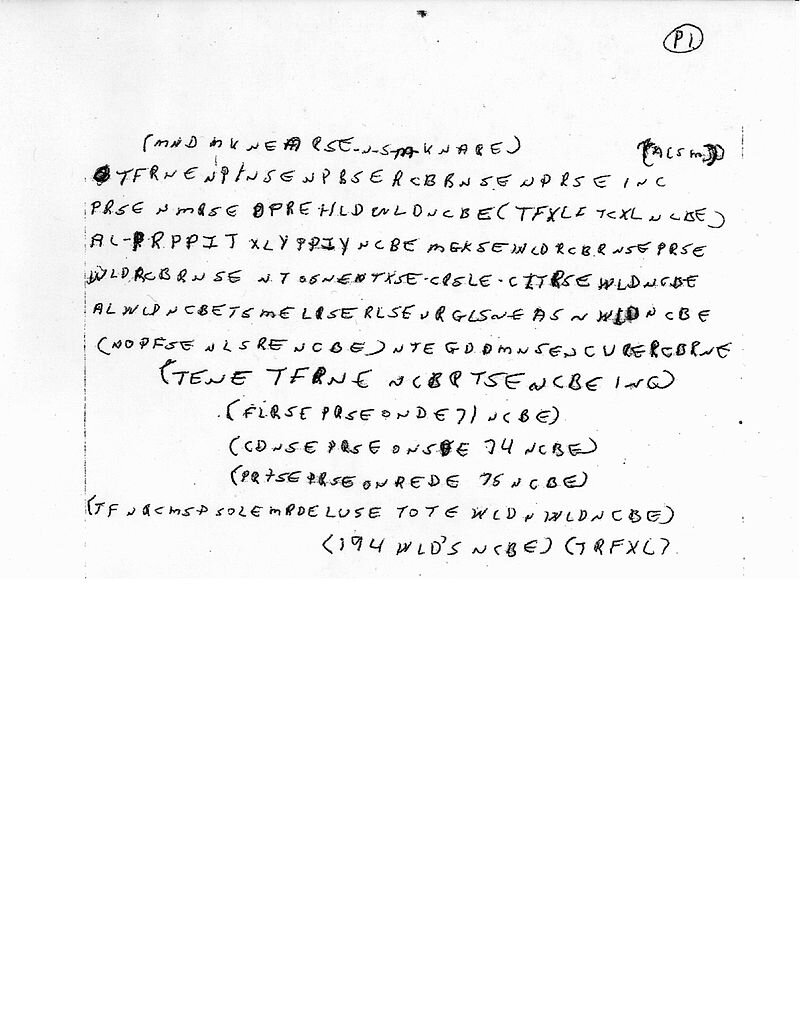 P1
(MND MKNEARSE-N-S-M-KNARE) (ACSM)
TFRNENPINSENPBSERCBRNSENPRSEINC
PRSENMRSEOPREHLDWLDNCBE(TFXLFTCXLNCBE)
AL-PRPPITXLYPPIYNCBEMGKSEWLDRCBRNSEPRSE
WLDRCBRNSENTOSNENTXSE-CRSLE-CITRSEWLDNCBE
ALWLDNCBETSMELRSERLSEURGLSNEASNWLDNCBE
(NOPFSENLSRENCBE)NTEGDDMNSENCURERCBRNE
(TENETFRNENCBRTSENCBEINC)
(FLRSEPRSEONDE71NCBE)
(CDNSEPRSEONSDE74NCBE)
(PRTSEPRSEONREDE75NCBE)
(TFNRCMSPSOLEMRDELUSETOTEWLDNWLDNCBE)
(194WLD'SNCBE)(TRFXL)